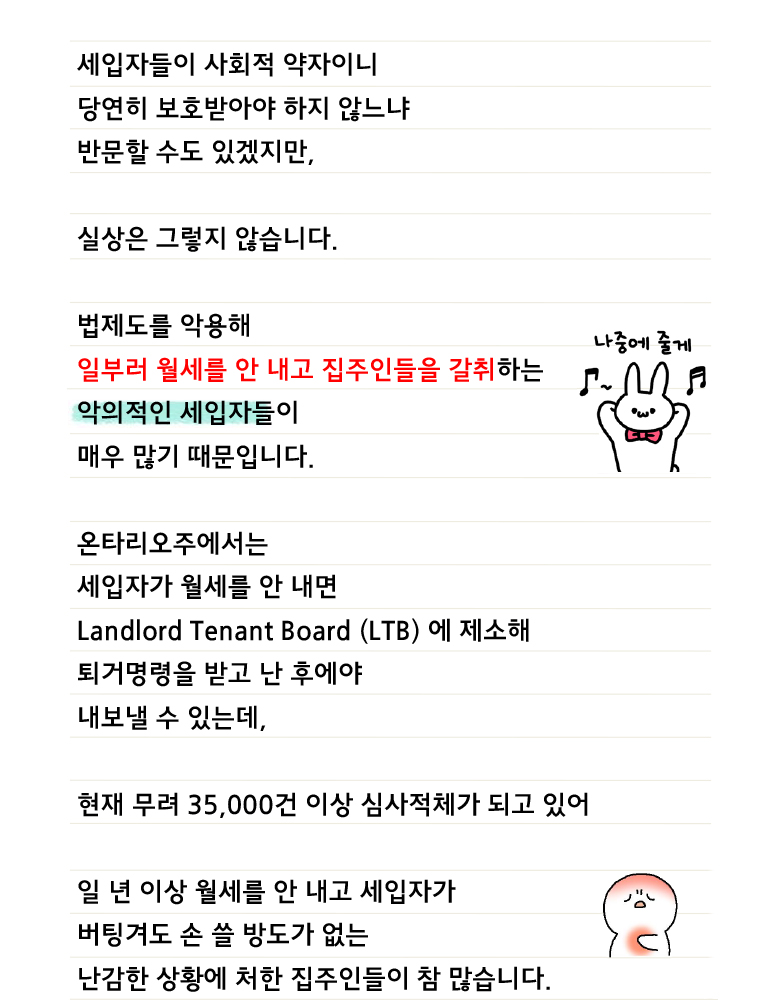 세입자들이 사회적 약자이니
당연히 보호받아야 하지 않느냐
반문할 수도 있겠지만,
실상은 그렇지 않습니다.
법제도를 악용해
나중에 줄게
일부러 월세를 안 내고 집주인들을 갈취하는
악의적인 세입자들이
매우 많기 때문입니다.
온타리오주에서는
세입자가 월세를 안 내면
Landlord Tenant Board (LTB) 에 제소해
퇴거명령을 받고 난 후에야
내보낼 수 있는데,
현재 무려 35,000건 이상 심사적체가 되고 있어
일 년 이상 월세를 안 내고 세입자가
버팅겨도 손 쓸 방도가 없는
난감한 상황에 처한 집주인들이 참 많습니다.